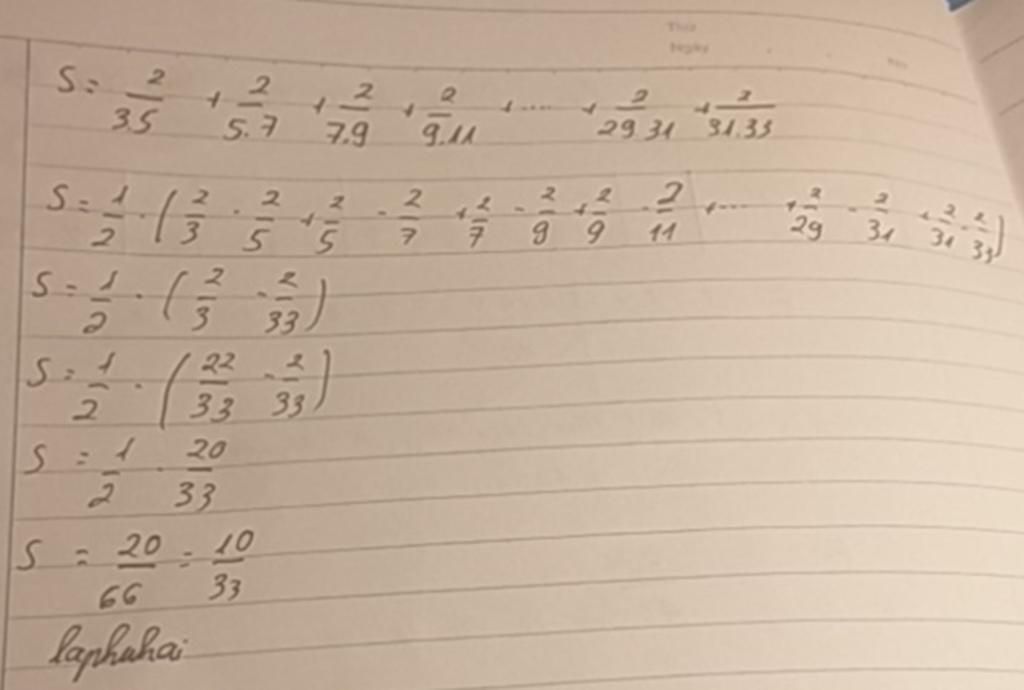 Thứ
Ngày
S = 2/3.5 + 2/5.7 + 2/7.9 + 2/9.11 + .... + 2/29.31 + 2/31.33
S = 1/2 . ( 2/3 - 2/5 + 2/5 - 2/7 + 2/7 - 2/9 + 2/9 - 2/11 + .... + 2/29 - 2/31 + 2/31 - 2/33 )
S = 1/2 . ( 2/3 - 2/33 )
S = 1/2 . ( 22/33 - 2/33 )
S = 1/2 . 20/33
S = 20/66 = 10/33
laphuhai